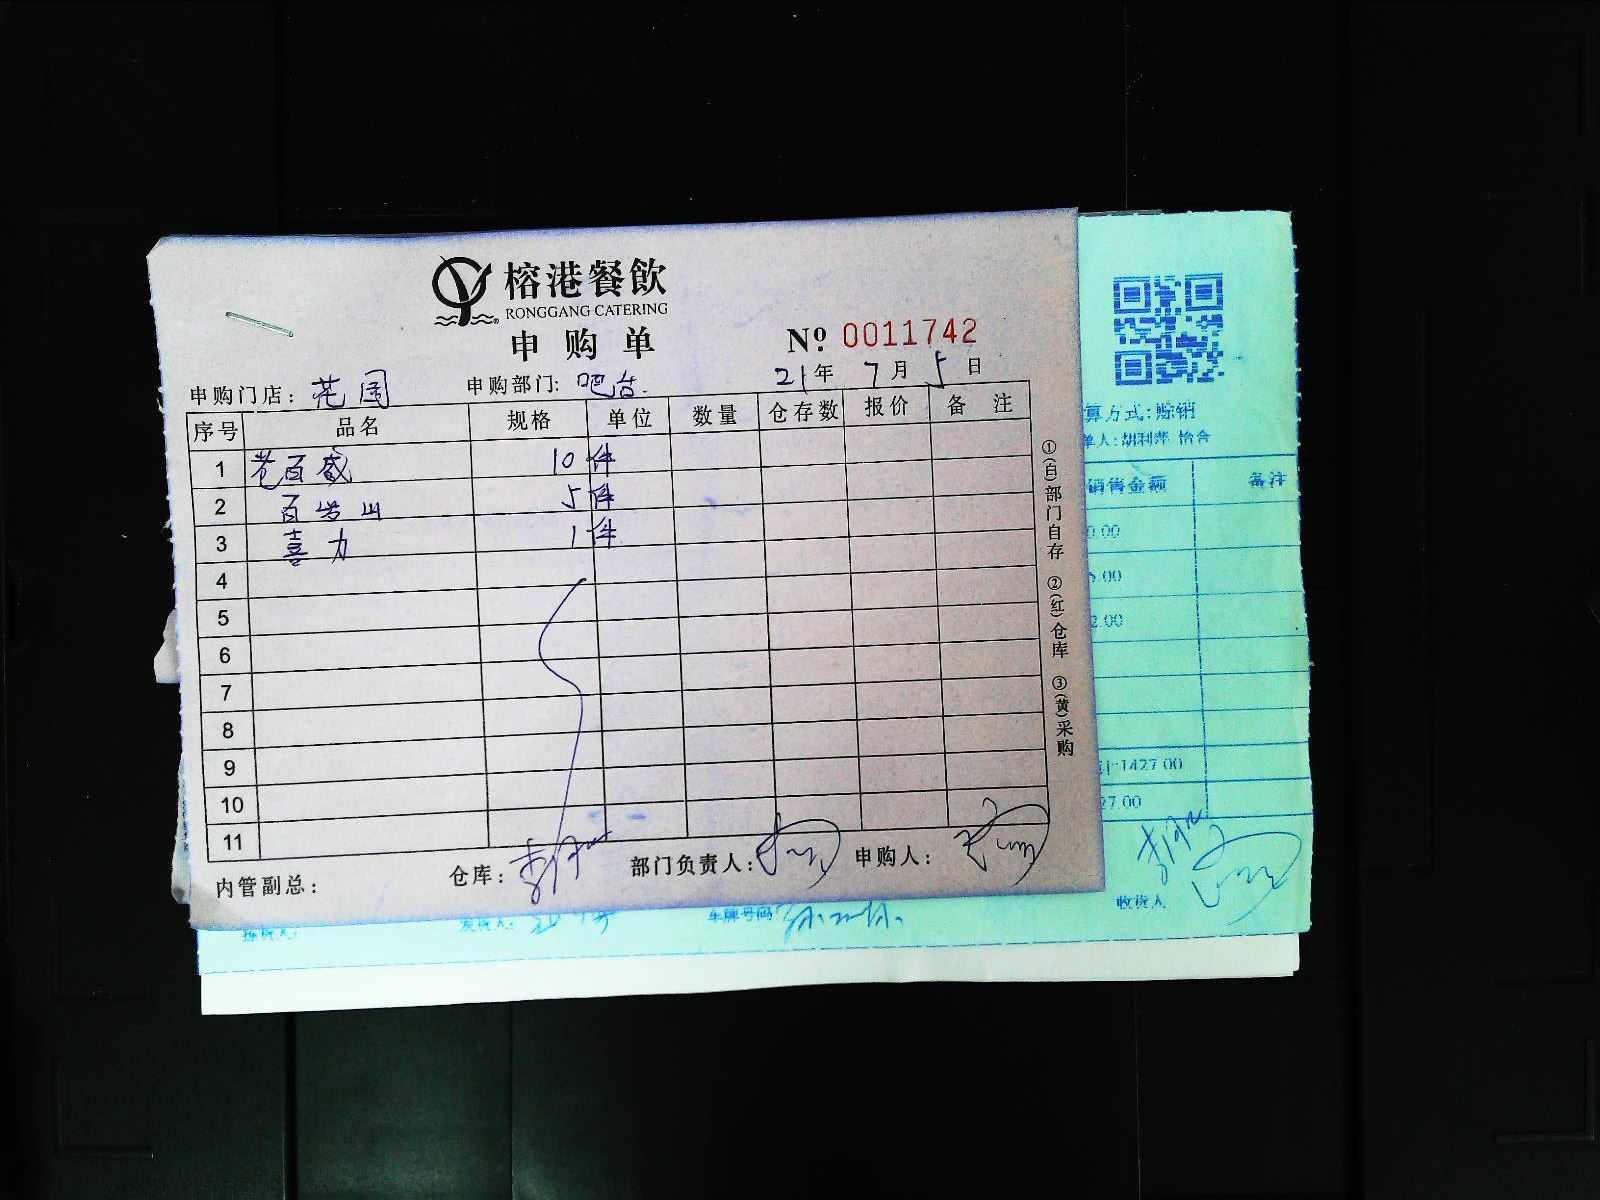 榕港餐飲
RONGGANG CATERING
申购单
№ 0011742
申购门店：花园 申购部门：吧台 21年7月5日
序号 品名 规格 单位 数量 仓存数 报价 备注
1 百威 10 件
2 百岁山 5 件
3 喜力 1 件
4
5
6
7
8
9
10
11
内管副总： 仓库： 部门负责人： 申购人：
①(白)部门自存 ②(红)仓库 ③(黄)采购
算方式：赊销
单人：胡利萍 怡合
销售金额 备注
0.00
5.00
2.00
计：1427.00
27.00
收货人
拣货人： 发货人： 车牌号码